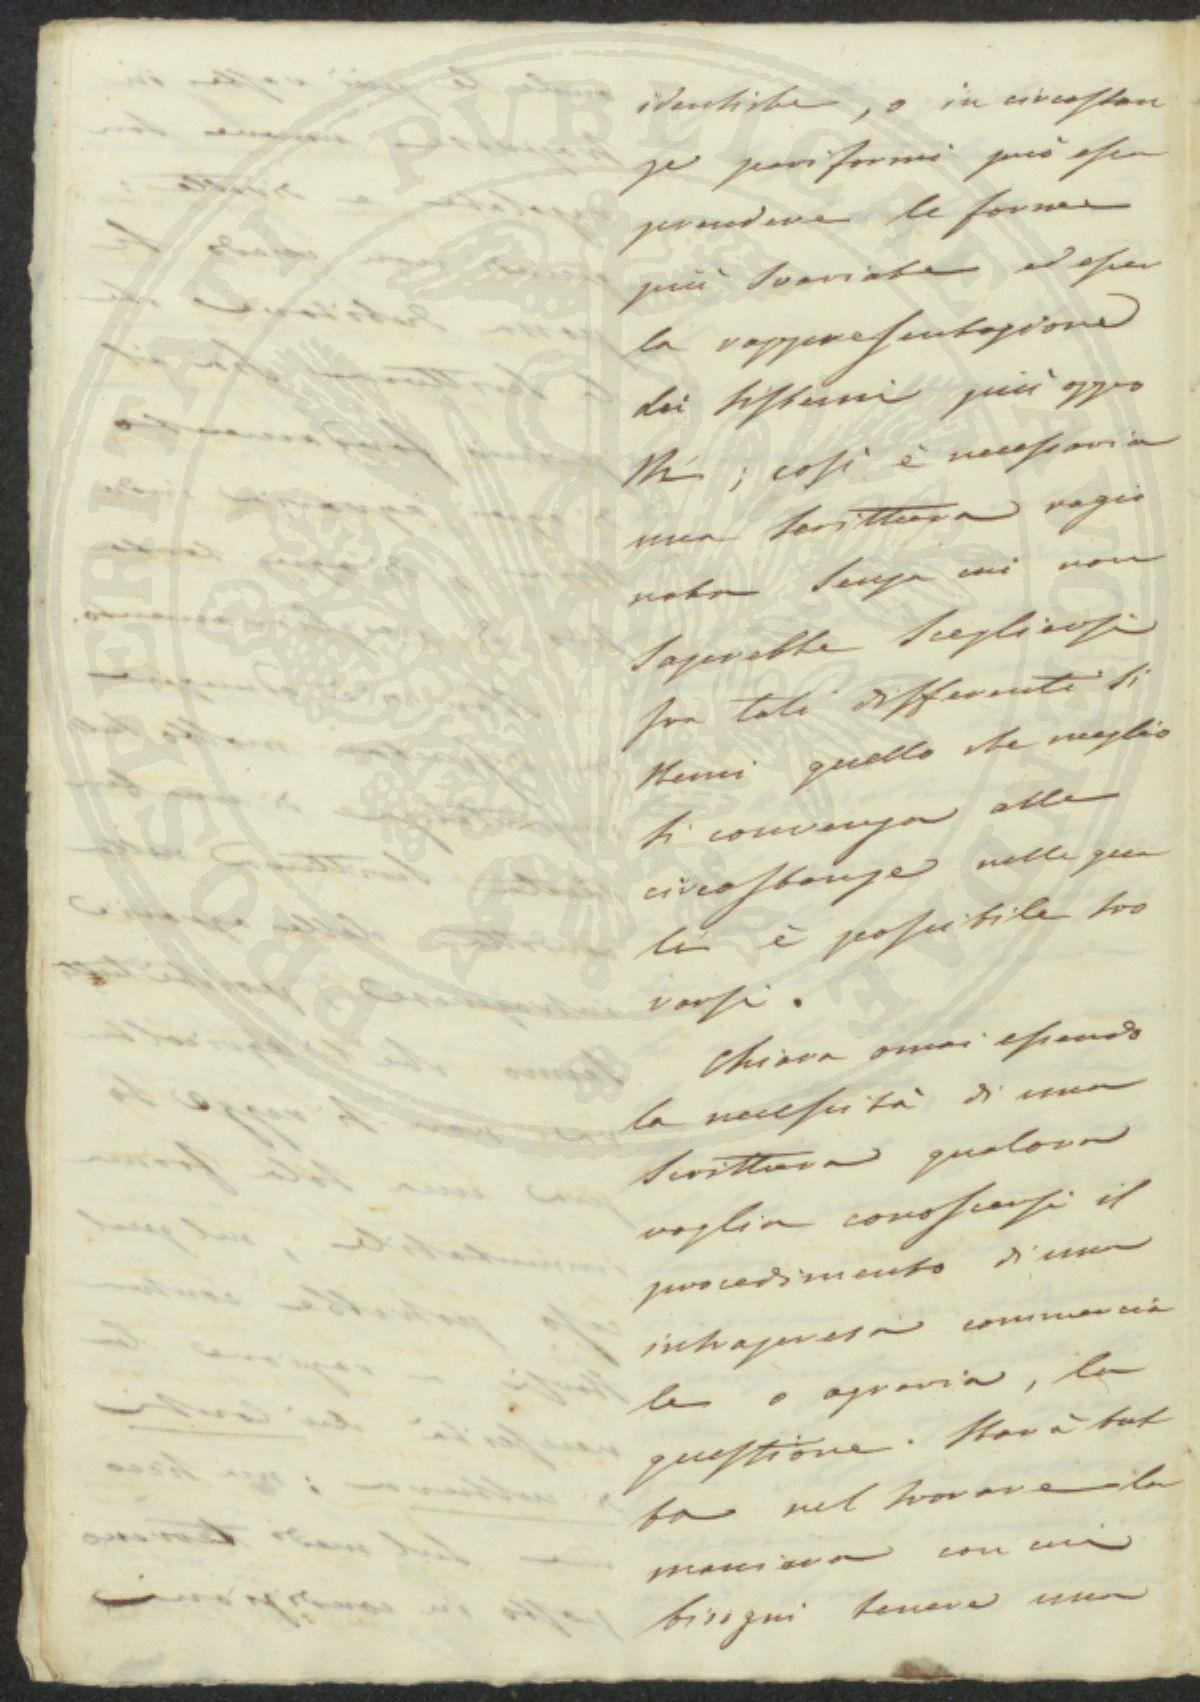 identiche, o in circostan
ze pariformi può essa
prendere le forme
più svariate ed esser
la rappresentazione
dei sistemi più oppo
sti; così è necessaria
una scrittura ragio
nata senza cui non
saperebbe scegliersi
fra tali differenti si
stemi quello che meglio
si convenga alle
circostanze nelle qua
li è possibile tro
varsi.
Chiara omai essendo
la necessità di una
scrittura qualora
voglia conoscersi il
procedimento di una
intrapresa commercia
le o agraria, la
questione. Starà tut
ta nel trovare la
maniera con cui
bisogni tenere una
PROSPERITATI PVBLICAE